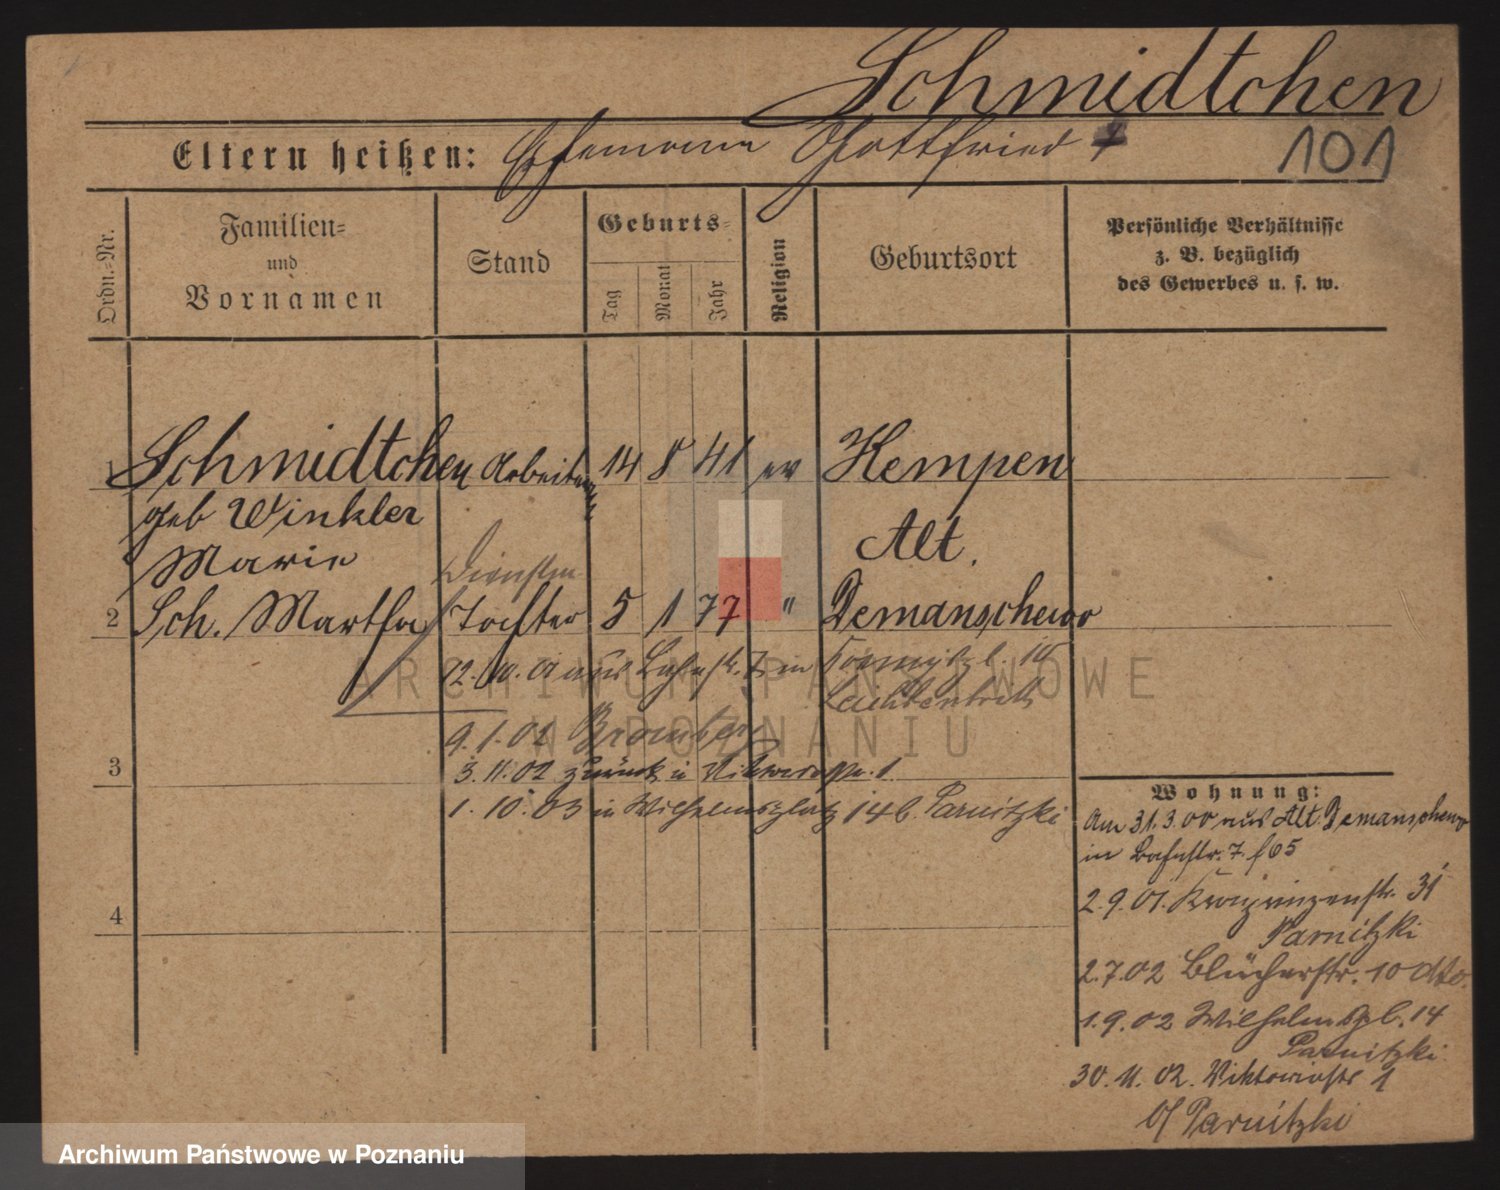 Schmidtchen
Eltern heißen: Ehemann Gottfried †
101
Ordn.=Nr.
Familien=
und
Vornamen
Stand
Geburts=
Tag
Monat
Jahr
Religion
Geburtsort
Persönliche Verhältnisse
z. B. bezüglich
des Gewerbes u. s. w.
1 Schmidtchen Arbeiterin 14 8 41 ev Kempen
geb Winkler
Marie
Alt.
2 Sch. Martha Tochter 5 1 77 " Demanschewo
12. 10. 01 aus Bahnstr. 7 in
9.1.02 Bromberg
3
3.11.02 zurück in Viktoriastr. 1
1. 10. 03 in Wilhelmsplatz 14 b. Parnitzki
4
Wohnung:
Am 31.3.00 aus Alt Demanschewo
in Bahnstr. 7.
2.9.01. Kronprinzenstr. 31
Parnitzki
2.7.02 Blücherstr. 10 dto.
1.9.02 Wilhelmspl. 14
Parnitzki
30. 11. 02. Viktoriastr 1
b/ Parnitzki
ARCHIWUM PAŃSTWOWE
W POZNANIU
Archiwum Państwowe w Poznaniu